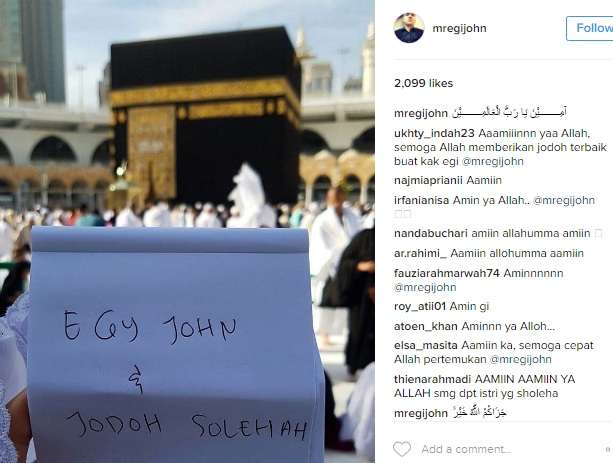 EGY JOHN
&
JODOH SOLEHAH
mregijohn
Follow
2,099 likes
mregijohn آمِيْــــــنْ يَا رَبَّ الْعَالَمِيْــــــنْ
ukhty_indah23 Aaamiiinnn yaa Allah,
semoga Allah memberikan jodoh terbaik
buat kak egi @mregijohn
najmiaprianii Aamiin
irfanianisa Amin ya Allah.. @mregijohn
nandabuchari amiin allahumma amiin
ar.rahimi_ Aamiin allohumma aamiin
fauziarahmarwah74 Aminnnnnn
@mregijohn
roy_atii01 Amin gi
atoen_khan Aminnn ya Alloh...
elsa_masita Aamiin ka, semoga cepat
Allah pertemukan @mregijohn
thienarahmadi AAMIIN AAMIIN YA
ALLAH smg dpt istri yg sholeha
mregijohn جَزَاكُمُ اللّٰهُ خَيْرً
Add a comment...